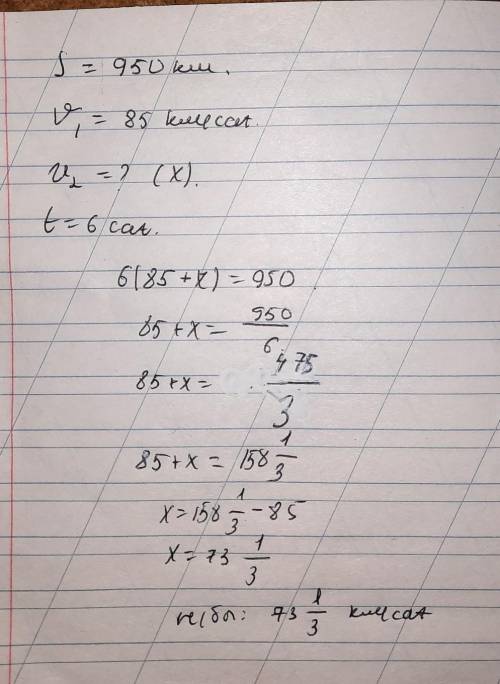 S = 950 км.
V₁ = 85 км/саг.
V₂ = ? (x).
t = 6 саг.
6(85 + x) = 950
85 + x = 950/6
85 + x = 475/3
85 + x = 158 1/3
x = 158 1/3 - 85
x = 73 1/3
73 1/3 км/саг